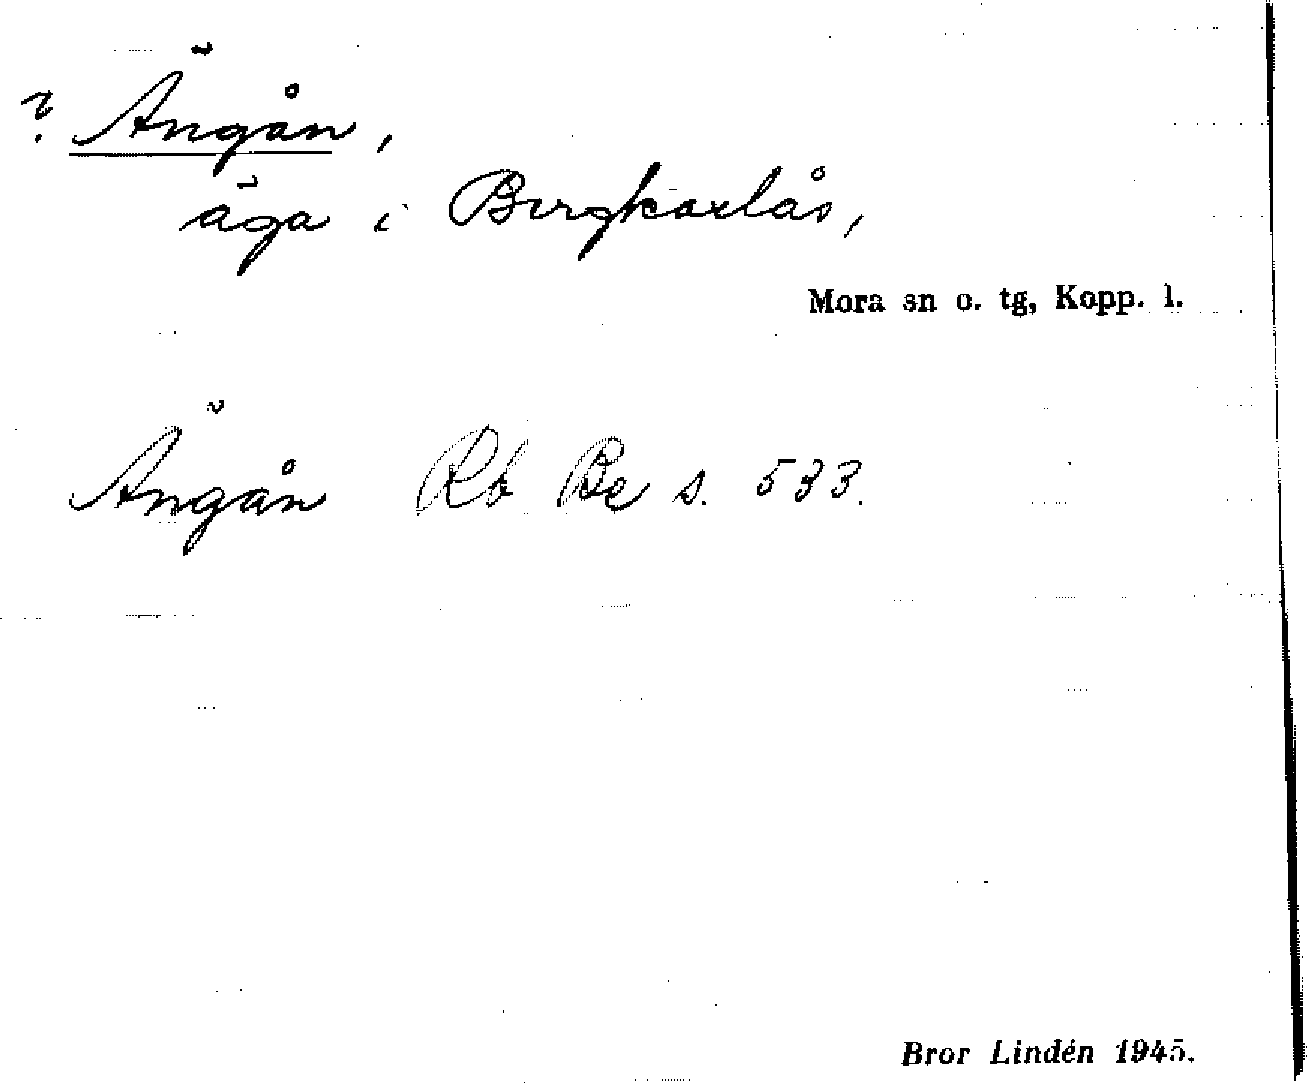 ? Ängån,
äga i Bergkarlås,
Mora sn o. tg, Kopp. l.
Ängån Rb Be s. 533.
Bror Lindén 1945.